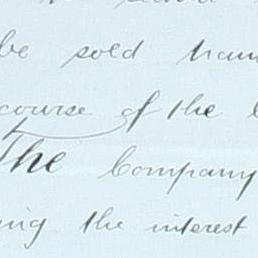 be sold tran
course of the
The Company
ing the interest